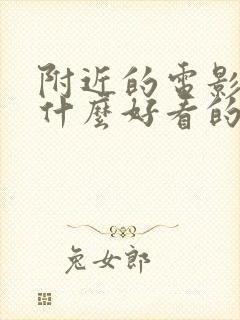 附近的電影
什麼好看的
兔女郎